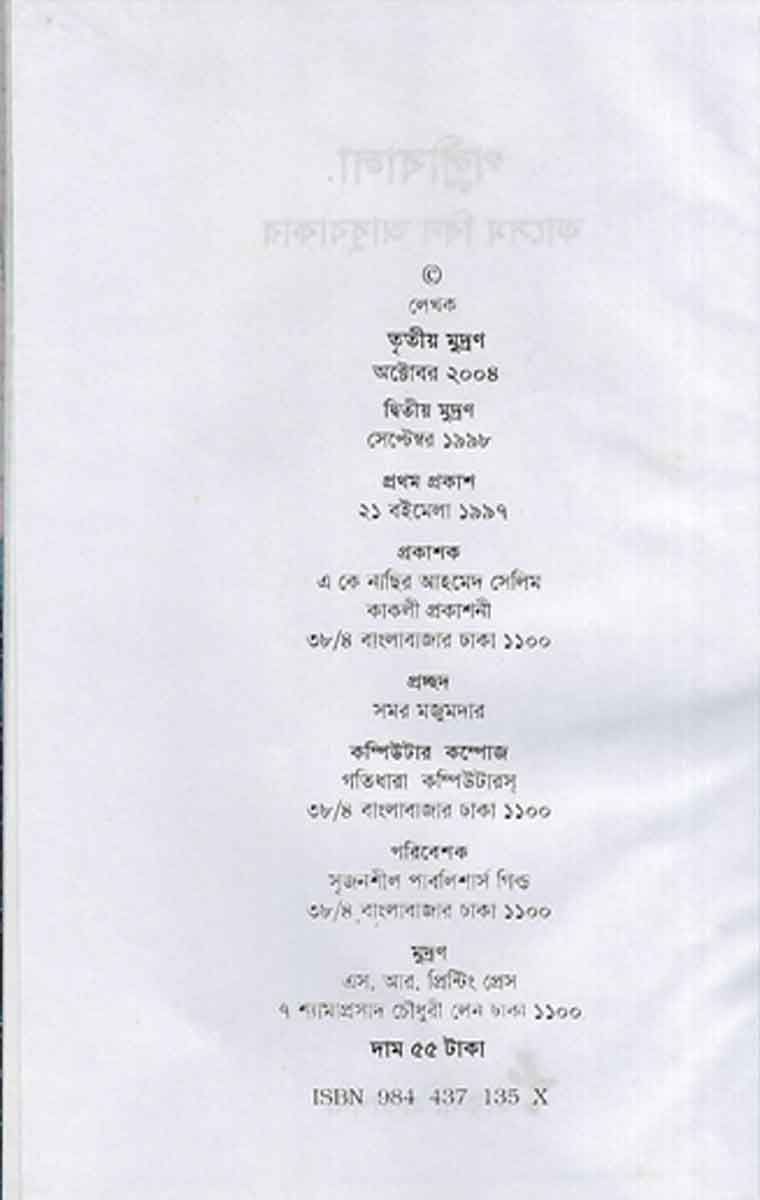 পল্লীবালা
কাসেম বিন আবুবাকার
©
লেখক
তৃতীয় মুদ্রণ
অক্টোবর ২০০৪
দ্বিতীয় মুদ্রণ
সেপ্টেম্বর ১৯৯৮
প্রথম প্রকাশ
২১ বইমেলা ১৯৯৭
প্রকাশক
এ কে নাছির আহমেদ সেলিম
কাকলী প্রকাশনী
৩৮/৪ বাংলাবাজার ঢাকা ১১০০
প্রচ্ছদ
সমর মজুমদার
কম্পিউটার কম্পোজ
গতিধারা কম্পিউটারস্
৩৮/৪ বাংলাবাজার ঢাকা ১১০০
পরিবেশক
সৃজনশীল পাবলিশার্স গিল্ড
৩৮/৪ বাংলাবাজার ঢাকা ১১০০
মুদ্রণ
এস. আর. প্রিন্টিং প্রেস
৭ শ্যামাপ্রসাদ চৌধুরী লেন ঢাকা ১১০০
দাম ৫৫ টাকা
ISBN 984 437 135 X